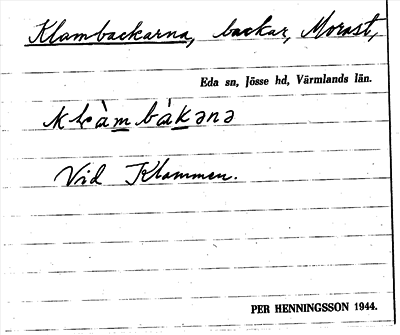 Klambackarna, backar, Morast,
Eda sn, Jösse hd, Värmlands län.
Vid Klammen.
PER HENNINGSSON 1944.